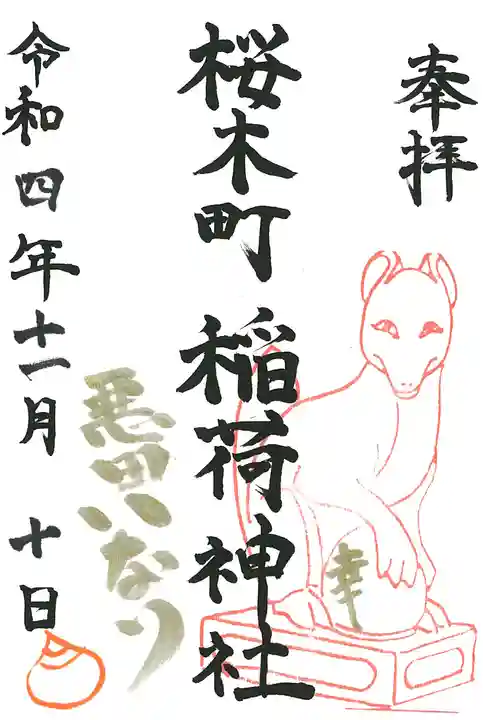 奉拝
桜木町 稲荷神社
幸
悪田いなり
令和四年十一月 十日